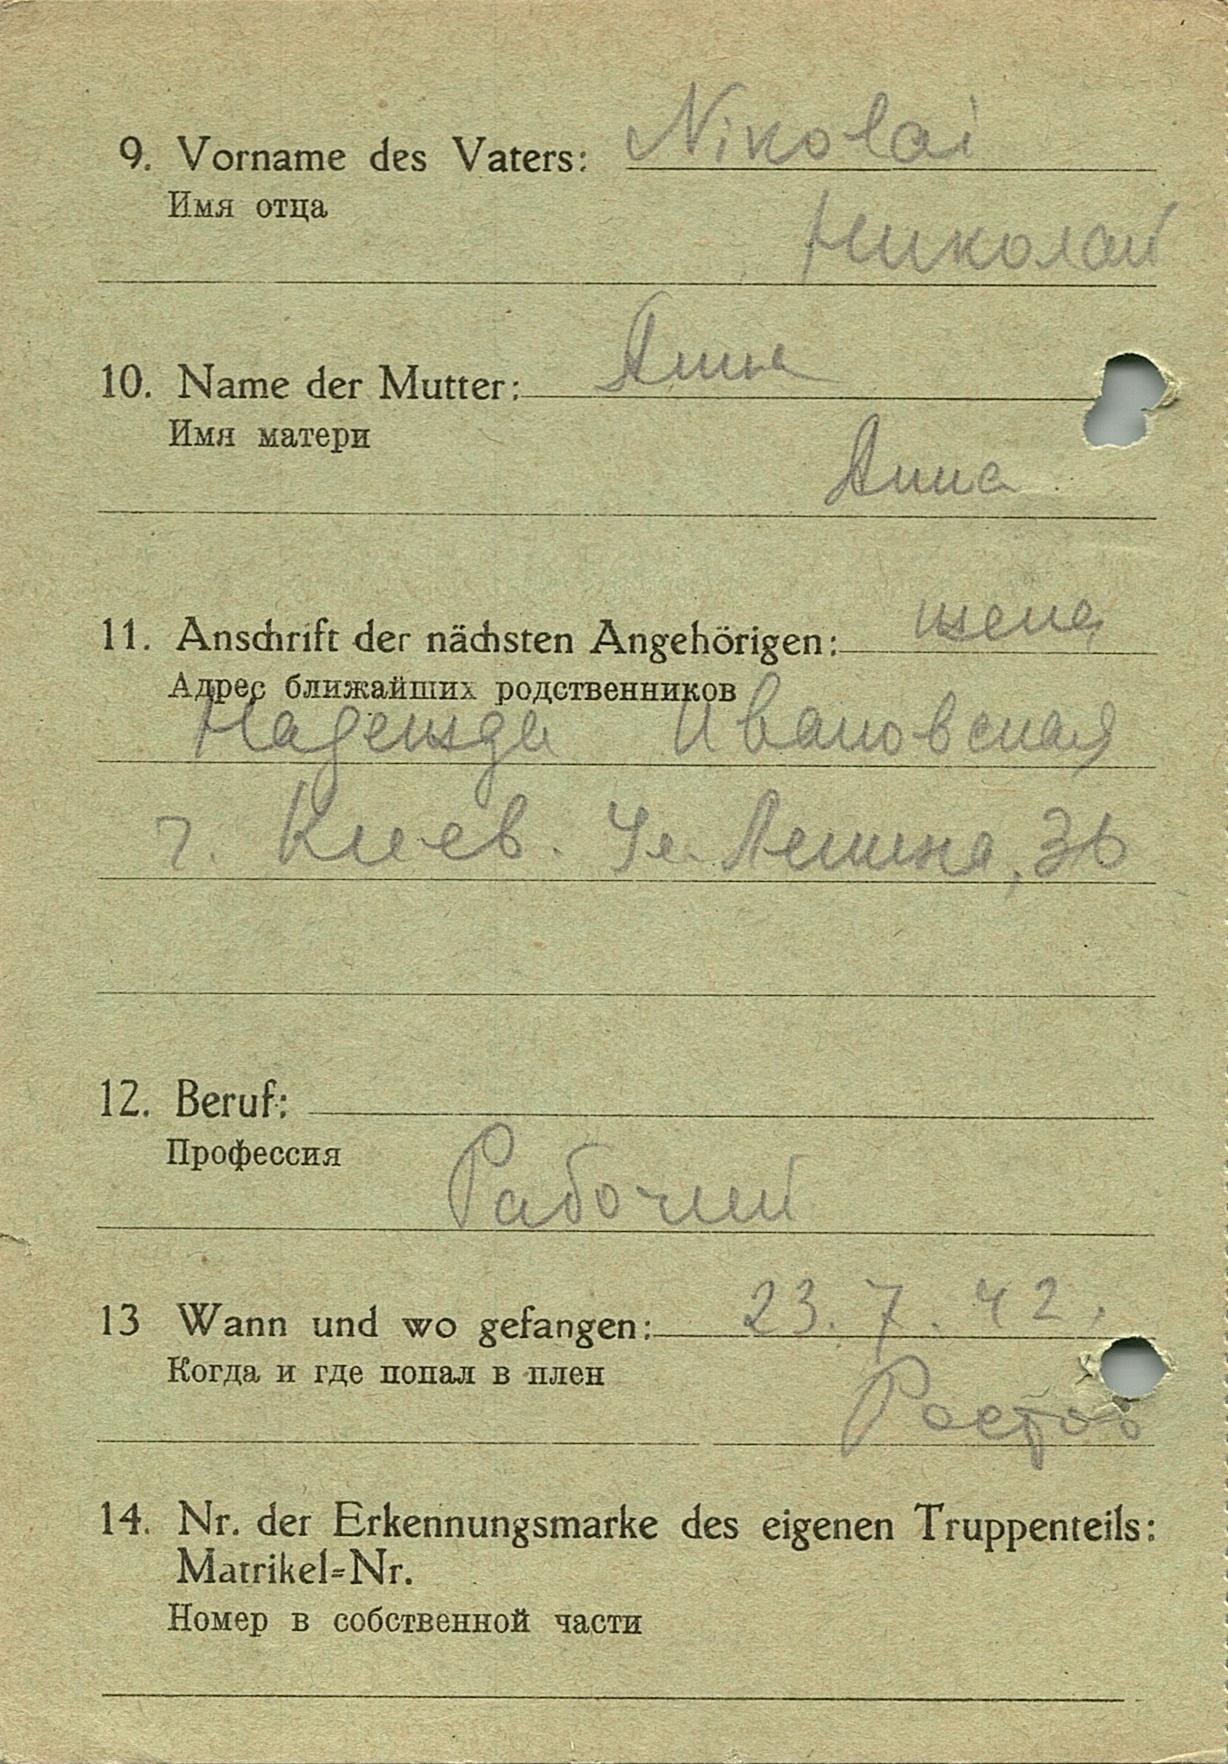 9. Vorname des Vaters: Nikolai
Имя отца
Николай
10. Name der Mutter: Анна
Имя матери
Анна
11. Anschrift der nächsten Angehörigen: жена
Адрес ближайших родственников
Надежда Ивановская
г. Киев. Ул. Ленина, 36
12. Beruf:
Профессия
Рабочий
13 Wann und wo gefangen: 23. 7. 42.
Когда и где попал в плен
Ростов
14. Nr. der Erkennungsmarke des eigenen Truppenteils:
Matrikel=Nr.
Номер в собственной части